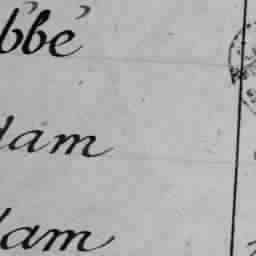 bbé
dam
dam